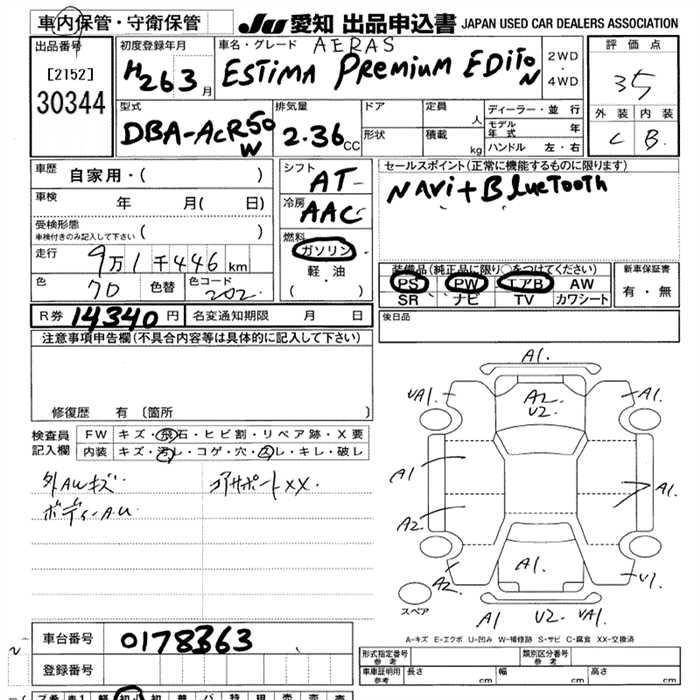 車内保管・守衛保管
JU 愛知 出品申込書 JAPAN USED CAR DEALERS ASSOCIATION
出品番号
[2152]
30344
初度登録年月
H26 3 月
車名・グレード AERAS
ESTIMA PREMIUM EDITON
2WD
・
4WD
評価点
3.5
外装 内装
C B
型式
DBA-ACR50W
排気量
2.36 CC
ドア
形状
定員 人
積載 kg
ディーラー・並行
モデル年式 年
ハンドル 左・右
車歴 自家用・( )
車検 年 月( 日)
受検形態
車検付きのみ記入して下さい ( )
走行 9万1千446km
色 70 色替 色コード 202
シフト
AT
冷房
AAC
燃料
ガソリン
軽油
( ・ )
セールスポイント(正常に機能するものに限ります)
Navi+BlueTooth
装備品(純正品に限り○をつけてください)
PS PW エアB AW
SR ナビ TV カワシート
新車保証書
有・無
R券 14340円 名変通知期限 月 日
後日品
注意事項申告欄(不具合内容等は具体的に記入して下さい)
修復歴 有〔箇所 〕
検査員
記入欄
FW キズ・飛石・ヒビ割・リペア跡・X要
内装 キズ・汚レ・コゲ・穴・スレ・キレ・破レ
外AWキズ
ボディーA.U
コアサポートXX
A1.
UA1. A2 U2 A1.
A1 A1.
A2
A2 A1. U1.
A1 U2 UA1.
スペア
A-キズ E-エクボ U-凹み W-補修跡 S-サビ C-腐食 XX-交換済
車台番号 0178363
登録番号
型式指定番号 参考
類別区分番号 参考
車庫証明用 参考 長さ cm 幅 cm 高さ cm